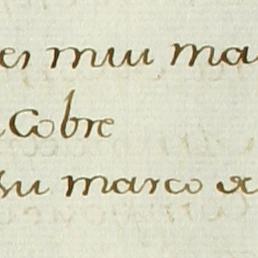 es mui ma
Cobre
su marco de